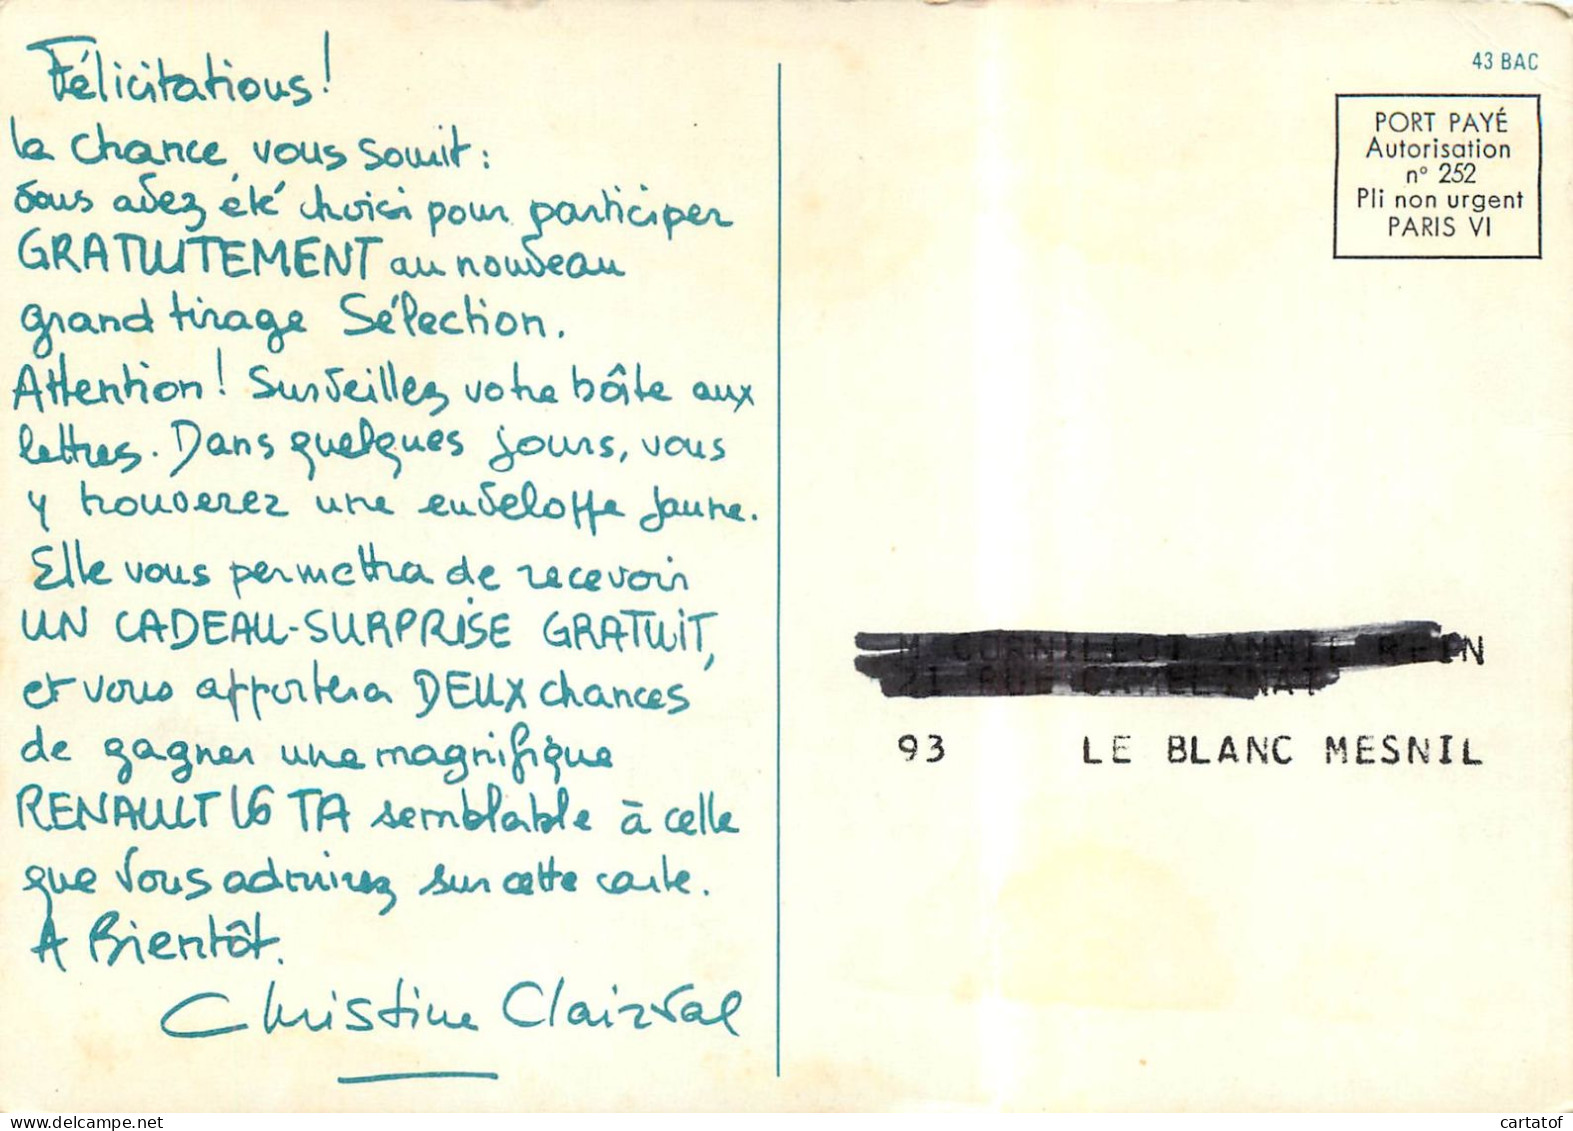 Félicitations!
la chance vous sourit :
vous avez été choisi pour participer
GRATUITEMENT au nouveau
grand tirage Sélection.
Attention! Surveillez votre boîte aux
lettres. Dans quelques jours, vous
y trouverez une enveloppe jaune.
Elle vous permettra de recevoir
UN CADEAU-SURPRISE GRATUIT,
et vous apportera DEUX chances
de gagner une magnifique
RENAULT 16 TA semblable à celle
que vous admirez sur cette carte.
A Bientôt.
Christine Clairval
43 BAC
PORT PAYÉ
Autorisation
n° 252
Pli non urgent
PARIS VI
93 LE BLANC MESNIL
cartatof